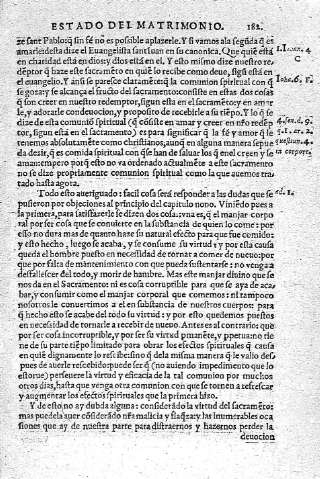 ESTADO DEL MATRIMONIO. 182.
ze sant Pablo: q̃ sin fe no es posible aplazerle. Y si vamos ala segũda q̃ es
amarle desta dize el Euangelista sant Iuan en su canonica. Que quiẽ está
en charidad está en dios: y dios está en el. Y esto mismo dize nuestro re-
dẽptor q̃ haze este sacramẽto en quiẽ lo recibe como deue, sigũ está en
el euangelio. Y ansi se paresce claramẽte: q̃ la comunion spiritual con q̃
se goza: y se alcança el fructo del sacramẽto: consiste en estas dos cosas
q̃ son creer en nuestro redemptor, sigun esta en el sacramẽto: y en amar
le, y adorarle con deuocion, y proposito de recebirle a su tiẽpo. Y lo q̃ se
dize de esta comuniõ spiritual (q̃ cõsiste en amar y creer en nr̃o redẽp
tor, sigun está en el sacramento) es para significar q̃ la fé y amor q̃ le
tenemos absolutamẽte como christianos, aunq̃ en alguna manera se pue
da dezir, q̃ es comida spiritual con q̃ se han de saluar los q̃ en el creen y se
aman: empero por q̃ esto no va ordenado actualmẽte a este sacramento
no se dize propriamente comunion spiritual como la que auemos tra-
tado hasta agora.
Todo esto aueriguado: facil cosa será responder a las dudas que se
pusieron por objeciones al principio del capitulo nono. Viniẽdo pues a
la primera, para satisfazerle se dizen dos cosas: vna es, q̃ el manjar corpo
ral por ser cosa que se conuierte en la substancia de quien lo come: por
esso no dura mas de quanto haze su natural efecto para que fue comido:
y esto hecho, luego se acaba, y se consume su virtud: y por esta causa
queda el hombre puesto en necesidad de tornar a comer de nueuo: por
que por falta de mantenimiento con que pueda sustentarse: no venga a
desfallescer del todo, y morir de hambre. Mas este manjar diuino que se
nos da en el Sacramento: ni es cosa corruptible para que se aya de aca-
bar, y consumir como el manjar corporal que comemos: ni tampoco
nosotros le conuertimos a el en substancia de nuestros cuerpos: para
q̃ hecho esto se acabe del todo su virtud: y por esto quedemos puestos
en necesidad de tornarle a recebir de nueuo. Antes es al contrario: que
por ser cosa incorruptible, y por ser su virtud permanẽte, y perpetua no tie
ne de su parte tiẽpo limitado para obrar los efectos spirituales q̃ causa
en quiẽ dignamente lo rescibe: sino q̃ dela misma manera q̃ le valio des-
pues de auerle rescebido: puede ser q̃ (no auiendo impedimento que lo
estorue) perseuere la virtud y eficacia de la tal comunion por muchos
otros dias, hasta que venga otra comunion con que se tornen a refrescar
y augmentar los efectos spirituales que la primera hizo.
Y de esto no ay dubda alguna: considerãdo la virtud del sacramẽto:
mas puedela auer cõsiderãdo nr̃a malicia y flaqueza: y las innumerables oca
siones que ay de nuestra parte para distraernos y hazernos perder la
deuocion